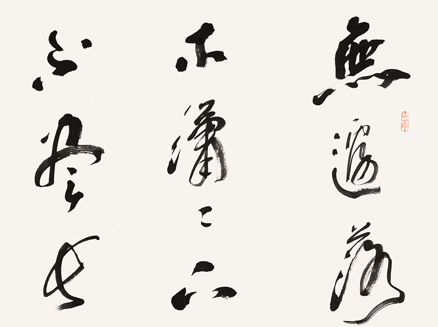 無邊落
木瀟〻下
不盡長